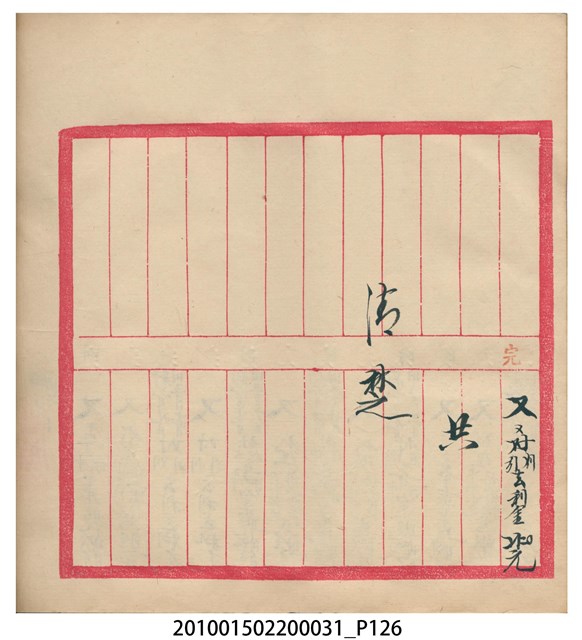 完
又
去利金
元
共
清楚
201001502200031_P126